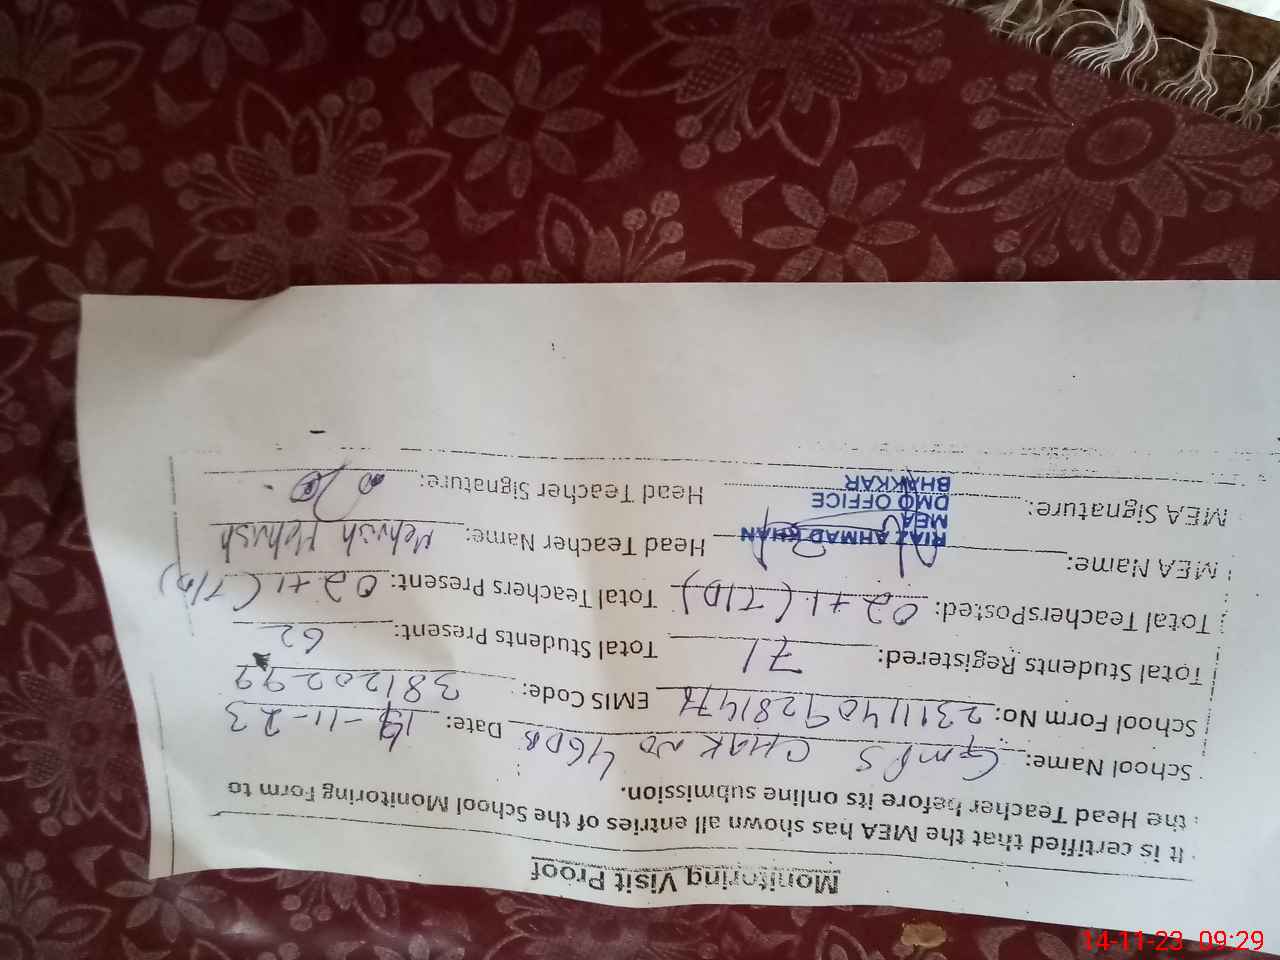 Monitoring Visit Proof
It is certified that the MEA has shown all entries of the School Monitoring Form to
the Head Teacher before its online submission.
School Name: GMPS CHAK NO 46DB Date: 14-11-23
School Form No: EMIS Code: 38120299
Total Students Registered: 71 Total Students Present: 62
Total TeachersPosted: 02+1 (T/D) Total Teachers Present: 02+1 (T/D)
MEA Name: RIAZ AHMAD KHAN Head Teacher Name: Mehvish Mehvish
MEA
DMO OFFICE
BHAKKAR
MEA Signature: Head Teacher Signature:
14-11-23 09:29